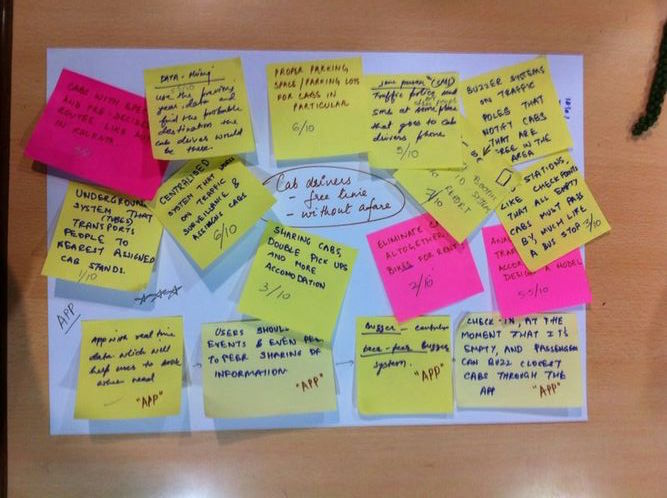 CABS WITH
AND PRE-DECIDED
ROUTES LIKE
IN KOLKATA
DATA - Mining
use the previous
years data and
find the probable
destination the
cab driver would
be there.
PROPER PARKING
SPACE / PARKING LOTS
FOR CABS IN
PARTICULAR
6/10
Traffic police and
sms at some place
that goes to cab
drivers phone
5/10
BUZZER SYSTEMS
ON TRAFFIC
POLES THAT
NOTIFY CABS
THAT ARE
FREE IN THE
AREA
UNDERGROUND
SYSTEM THAT
(TUBES)
TRANSPORTS
PEOPLE TO
NEAREST ASSIGNED
CAB STANDS.
1/10
CENTRALISED
SYSTEM THAT
ON TRAFFIC
SURVEILLANCE &
ASSIGNS CABS
6/10
Cab drivers
- free time
- without a fare
7/10
STATIONS,
LIKE CHECKPOINTS
THAT ALL EMPTY
CABS MUST PASS
BY, MUCH LIKE
A BUS STOP
3/10
SHARING CABS,
DOUBLE PICK UPS
AND MORE
ACCOMODATION
3/10
ELIMINATE
ALTOGETHER
BIKES FOR RENT
2/10
DESIGN A MODEL
5.5/10
APP
App with real time
data which will
help user to
"APP"
USERS SHOULD
EVENTS & EVEN
TO PEER SHARING OF
INFORMATION
"APP"
Buzzer -
peer-peer buzzer
system.
"APP"
CHECK-IN, AT THE
MOMENT THAT IT'S
EMPTY, AND PASSENGER
CAN BUZZ CLOSEST
CABS THROUGH THE
APP
"APP"